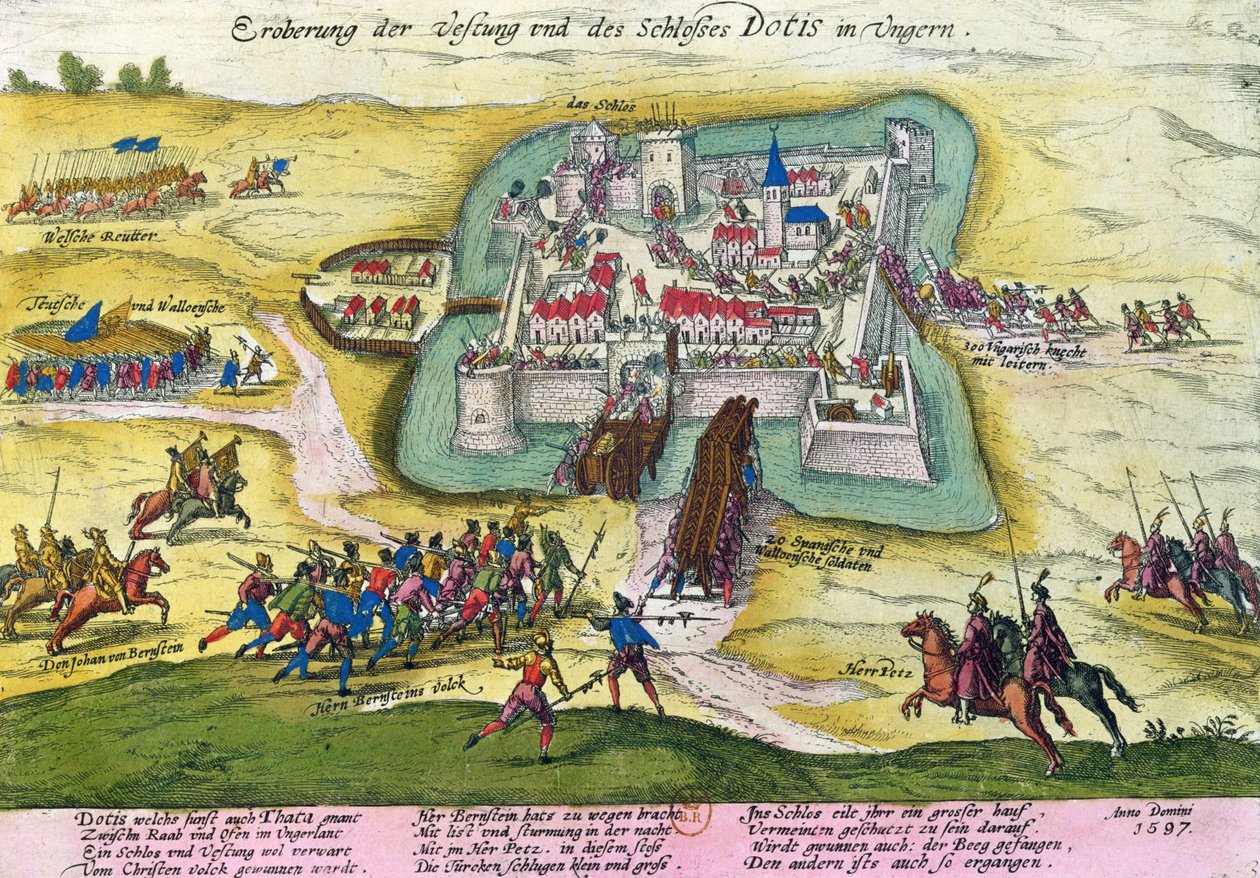 Eroberung der Vestung vnd des Schlosses Dotis in Vngern.
das Schlos
Welsche Reutter
Teutsche vnd Walloensche
300 Vngarisch knecht
mit leitern.
20 Spanische vnd
Walloensche soldaten
Don Johan von Bernstein
Hern Bernsteins volck
Herr Petz
Dotis welchs sunst auch Thata gnant
Zwischn Raab vnd Ofen im Ungerlant
Ein Schlos vnd Vestung wol verwart
Vom Christen volck gewunnen wardt.
Her Bernstein hats zu wegen bracht
Mit list vnd sturmung in der nacht
Mit jm Her Petz. in diesem stoss
Die Türcken schlugen klein vnd gross.
Jns Schlos eilt jhrr ein grosser hauf,
Vermeinten geschutzt zu sein darauf,
Wirdt gwunnen auch: der Beeg gefangen,
Den andern ists auch so ergangen.
Anno Domini
1597.
B.R